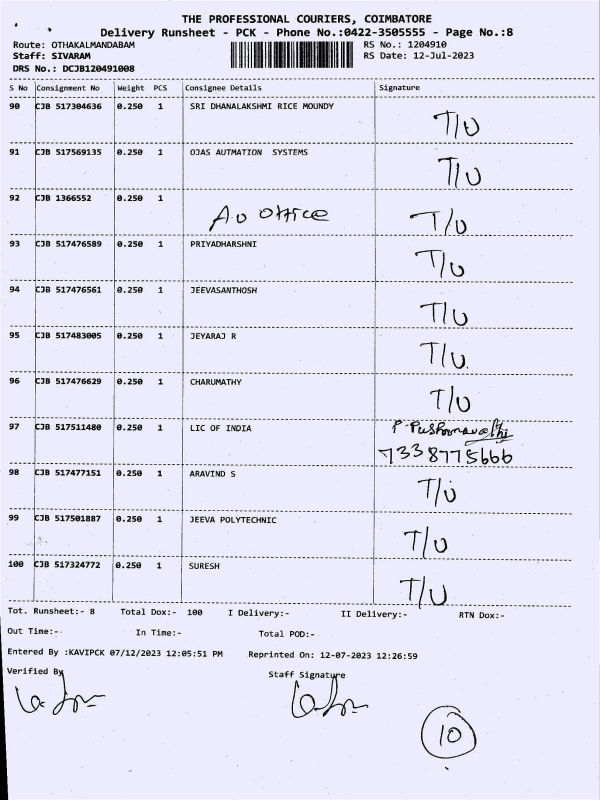 THE PROFESSIONAL COURIERS, COIMBATORE
Delivery Runsheet - PCK - Phone No.:0422-3505555 - Page No.:8
Route: OTHAKALMANDABAM RS No.: 1204910
Staff: SIVARAM RS Date: 12-Jul-2023
DRS No.: DCJB120491008
S No Consignment No Weight PCS Consignee Details Signature
90 CJB 517304636 0.250 1 SRI DHANALAKSHMI RICE MOUNDY T/U
91 CJB 517569135 0.250 1 OJAS AUTMATION SYSTEMS T/U
92 CJB 1366552 0.250 1 office T/U
93 CJB 517476589 0.250 1 PRIYADHARSHNI T/U
94 CJB 517476561 0.250 1 JEEVASANTHOSH T/U
95 CJB 517483005 0.250 1 JEYARAJ R T/U
96 CJB 517476629 0.250 1 CHARUMATHY T/U
97 CJB 517511480 0.250 1 LIC OF INDIA P.
7338775666
98 CJB 517477151 0.250 1 ARAVIND S T/U
99 CJB 517501887 0.250 1 JEEVA POLYTECHNIC T/U
100 CJB 517324772 0.250 1 SURESH T/U
Tot. Runsheet:- 8 Total Dox:- 100 I Delivery:- II Delivery:- RTN Dox:-
Out Time:- In Time:- Total POD:-
Entered By :KAVIPCK 07/12/2023 12:05:51 PM Reprinted On: 12-07-2023 12:26:59
Verified By Staff Signature
10